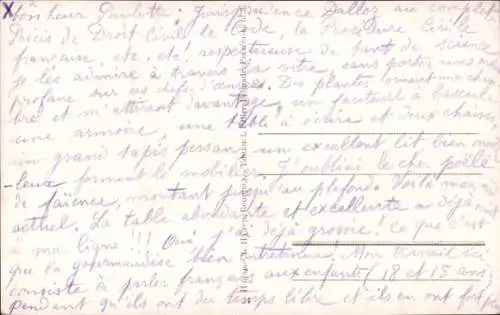 bonheur Paulette: jurisprudence Dalloz au complet
Précis de Droit Civil le Code, la Procédure Civile
française, etc, etc! respectueuse de tant de science
je les admire à travers la vitre sans porter une main
profane sur ces chefs d'œuvres. Des plantes
et m'attirent davantage, un fauteuil à bascule
une armoire, une table à écrire et deux chaises
un grand tapis persan un excellent lit bien moel-
-leux forment le mobilier. J'oubliai le cher poêle
de faïence, montant jusqu'au plafond. Voilà mon
actuel. La table abondante et excellente a déjà nui
à ma ligne!!! Oui j'ai déjà grossi! Ce que c'est
que la gourmandise bien entretenue! Mon travail ici
consiste à parler français aux enfants (18 et 15 ans)
pendant qu'ils ont du temps libre et ils en ont fort peu